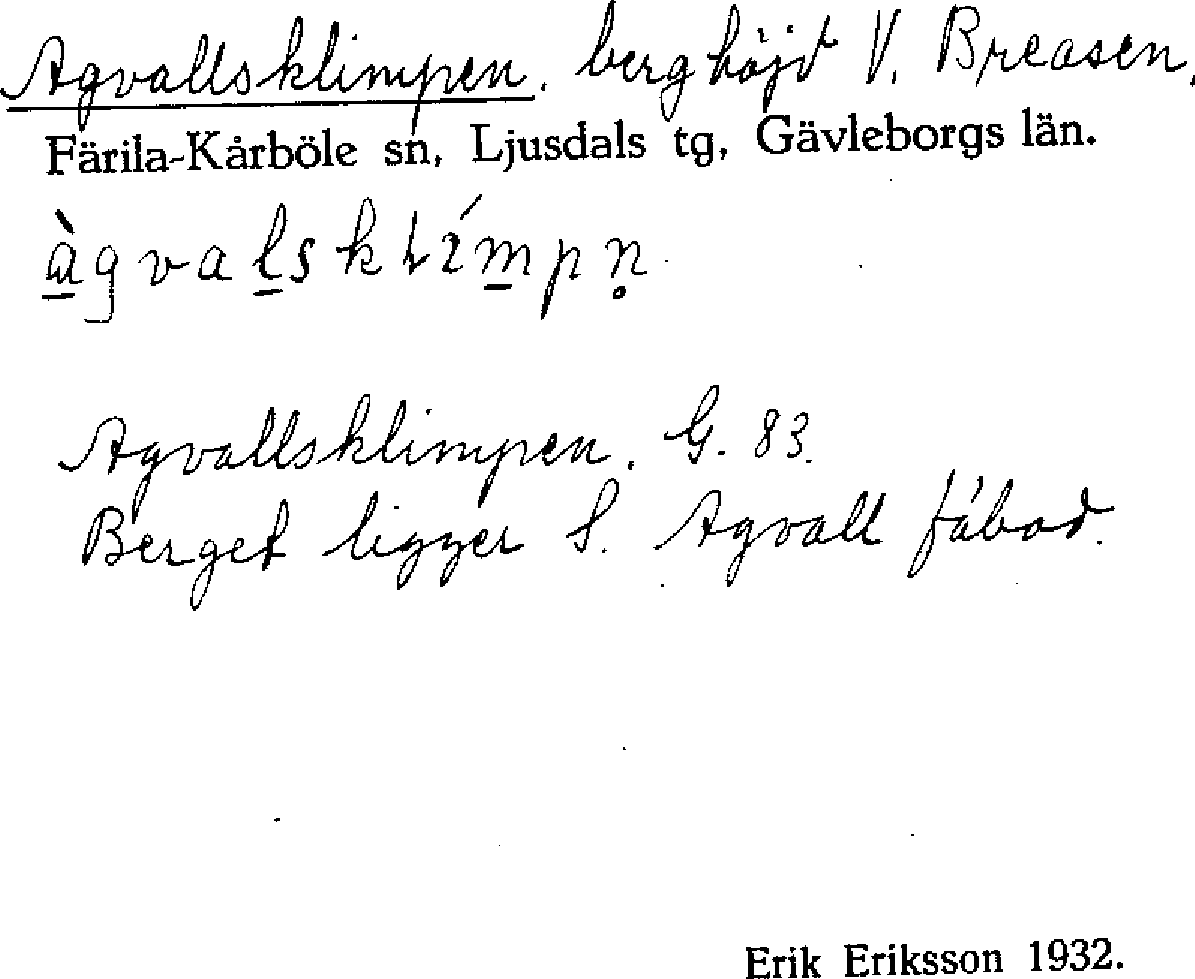 Agvallsklimpen. berghöjd V. Breåsen.
Färila-Kårböle sn, Ljusdals tg, Gävleborgs län.
Agvallsklimpen. G. 83.
Berget ligger S. Agvall fäbod.
Erik Eriksson 1932.